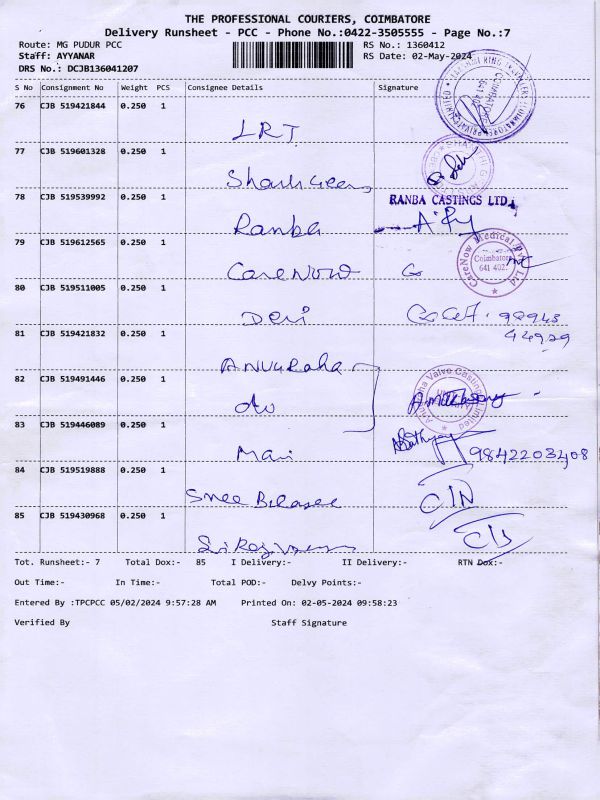 THE PROFESSIONAL COURIERS, COIMBATORE
Delivery Runsheet - PCC - Phone No.:0422-3505555 - Page No.:7
Route: MG PUDUR PCC RS No.: 1360412
Staff: AYYANAR RS Date: 02-May-2024
DRS No.: DCJB136041207
S No Consignment No Weight PCS Consignee Details Signature
76 CJB 519421844 0.250 1
LRT
77 CJB 519601328 0.250 1
78 CJB 519539992 0.250 1 RANBA CASTINGS LTD.
Ranba
79 CJB 519612565 0.250 1 CareNow Medical Pvt Ltd
Coimbatore
641 402.
CareNow
80 CJB 519511005 0.250 1
Devi 98943
44929
81 CJB 519421832 0.250 1
Anuraha
82 CJB 519491446 0.250 1
do
83 CJB 519446089 0.250 1
Mani 9842203408
84 CJB 519519888 0.250 1
Sree
85 CJB 519430968 0.250 1
Tot. Runsheet:- 7 Total Dox:- 85 I Delivery:- II Delivery:- RTN Dox:-
Out Time:- In Time:- Total POD:- Delvy Points:-
Entered By :TPCPCC 05/02/2024 9:57:28 AM Printed On: 02-05-2024 09:58:23
Verified By Staff Signature